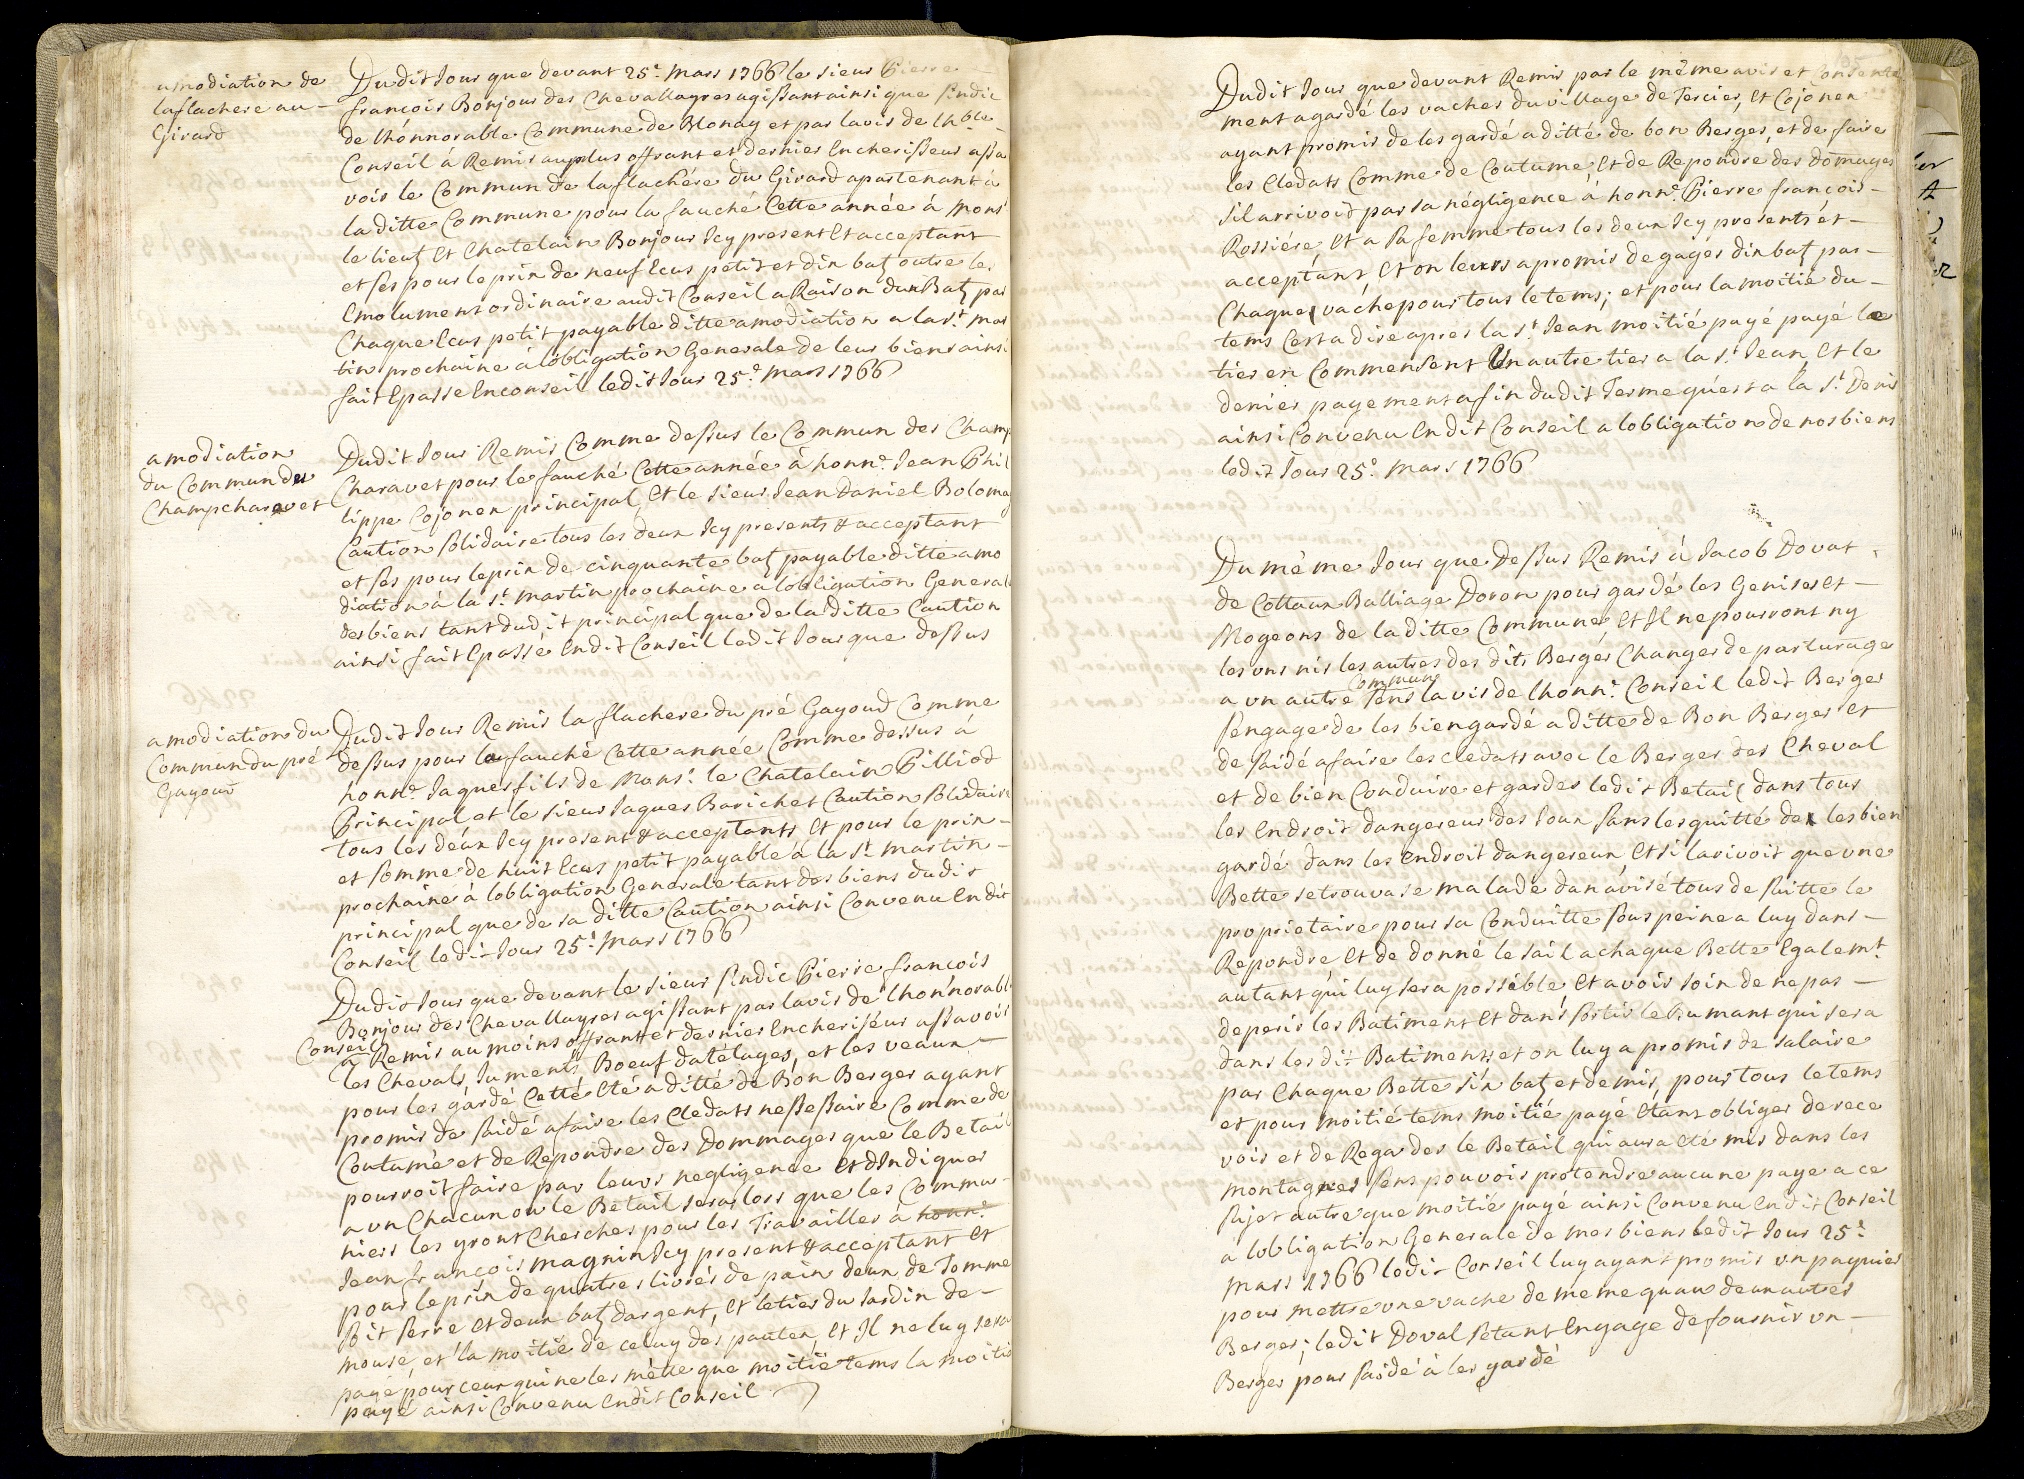 amodiation de
laflachere au
Girard
Dudit Jour que devant 25.e mars 1766 le sieur Pierre
françois Bonjour des Chevallayres agissant ainsi que sindic
de Lhonnorable Commune de Blonay et par lavis de lh.ble
Conseil à Remis au plus offrant et dernier Encherisseur assa
voir le Commun de laflachére du Girard apartenant à
la ditte Commune pour la fauché Cette année à Mons.r
le lieut Et Chatelain Bonjour Icy present Et acceptant
et ses pour le prix de neuf Ecus petit et dix batz outre les
Emolument ordinaire audit Conseil a Raison dux Batz par
Chaque Ecus petit payable ditte amodiation a la s.t mar
tin prochaine à lobligation Generale de leur biens ainsi
fait Epasse En conseil ledit Jour 25.e mars 1766
amodiation
du Commun des
Champcharavet
Dudit Jour Remis Comme dessus le Commun des Champ
Charavet pour le fauché Cette année à honn.e Jean Phil
lippe Cojonex principal, Et le sieur Jean Daniel Boloma
Caution solidaire tous les deux Icy presents & acceptant
et ses pour le prix de cinquante batz payable ditte amo
diation à la s.t Martin prochaine a lobligation General
des biens tant dudit principal que de la ditte Caution
ainsi fait Epassé En dit Conseil ledit Jour que dessus
amodiation du
Commun du pré
Gayoud
Dudit Jour Remis la flachere du pré Gayoud Comme
dessus pour la fauché Cette année Comme dessus à
honn.e Jaques fils de Mons.r le Chatelain Pilliod
Principal et le sieur Jaques Barichet Caution solidaire
tous les deux Icy present & acceptants Et pour le prix
et somme de huit Ecus petit payable à la s.t Martin
prochaine à lobligation Generale tant des biens dudit
principal que de sa ditte Caution ainsi Convenu En dit
Conseil ledit Jour 25.e Mars 1766
Dudit Jour que devant le sieur sindic Pierre françois
Bonjour des Chevallayres agissant par lavis de lhonnorable
Conseil
à Remis au moins offrant et dernier Encheriseur assavoir
les Chevals, Juments, Boeuf datélages, et les veaux
pour les gardé Cette Eté a ditte de Bon Berger ayant
promis de saidé a faire les Cledats nessessaire Comme de
Coutume et de Repondre des Dommages que le Betail
pourroit faire par leurs negligence Et dIndiquer
a un Chacun ou le Betail sera lors que les Commu
niers les yront Chercher pour les Travailler à honn.e
Jean françois magnin Icy present & acceptant Et
pour le prix de quatres livres de pain deux de Tomme
soit serré Et deux batz dargent, Et le tier du Jardin de
mouse, et la moitié de celuy des pautex, Et Il ne luy sera
payé pour ceux qui ne les mette que moitié tems la moitié
payé ainsi Convenu En dit Conseil
Dudit Jour que devant Remis par le même avis et Consente
ment a gardé les vaches du village de Tercier, Et Cojonex
ayant promis de les gardé a ditté de bon Berger, et de faire
les Cledats Comme de Coutume, Et de Repondre des domages
sil arrivoit par sa négligence à honn.e Pierre françois
Rossiére, Et a sa femme tous les deux Icy presents et
acceptant, Et on leurs a promis de gages dix batz par
Chaque vache pour tous le tems; et pour la moitié du
tems Cest a dire apres la s.t Jean moitié payé payé le
tier en Commensent Un autre tier a la s.t Jean, Et le
denier payement a fin dudit Terme quest a la s.t Denis
ainsi Convenu En dit Conseil a lobligation de nos biens
ledit Jour 25.e Mars 1766
Du même Jour que Dessus Remis à Jacob Dovat
de Cottaux Balliage Doron pour gardé les Genises et
Mogeons de la ditte Commune, Et Il ne pourront ny
les uns nis les autres des dits Berger Changer de parturage
Commun
a un autre sens lavis de lhonn.e Conseil ledit Berger
sengage de les bien gardé a ditte de Bon Berger et
de saidé a faire les cledats avec le Berger des Cheval
et de bien Conduire et garder ledit Betail dans tous
les Endroit dangereux des Joux sans les quitté de les bien
gardé dans les Endroit dangereux, Et si larivoit que une
Bette se trouvase malade dan avisé tous de suitte le
proprietaire pour sa Conduitte sous peine a luy dans
Repondre Et de donné le sail a chaque Bette Egalem.t
autant qui luy sera possible Et avoir soin de ne pas
deperir les Batiment Et dans sortir le fumant qui sera
dans les dit Batiments et on luy a promis de salaire
par Chaque Bette six batz et demis, pour tous le tems
et pour moitié tems moitié payé Etant obliger de rece
voir et de Regarder le Betail qui aura Eté mis dans les
montagnes sens pouvoir pretendre aucune paye a ce
sujet autre que moitié payé ainsi Convenu En dit Conseil
a lobligation Generale de mes biens ledit Jour 25.e
Mars 1766 ledit Conseil luy ayant promis un paquier
pour mettre une vache de meme quau deux autres
Berger; ledit Doval setant Engage de fournir un
Berger pour saidé à les gardé